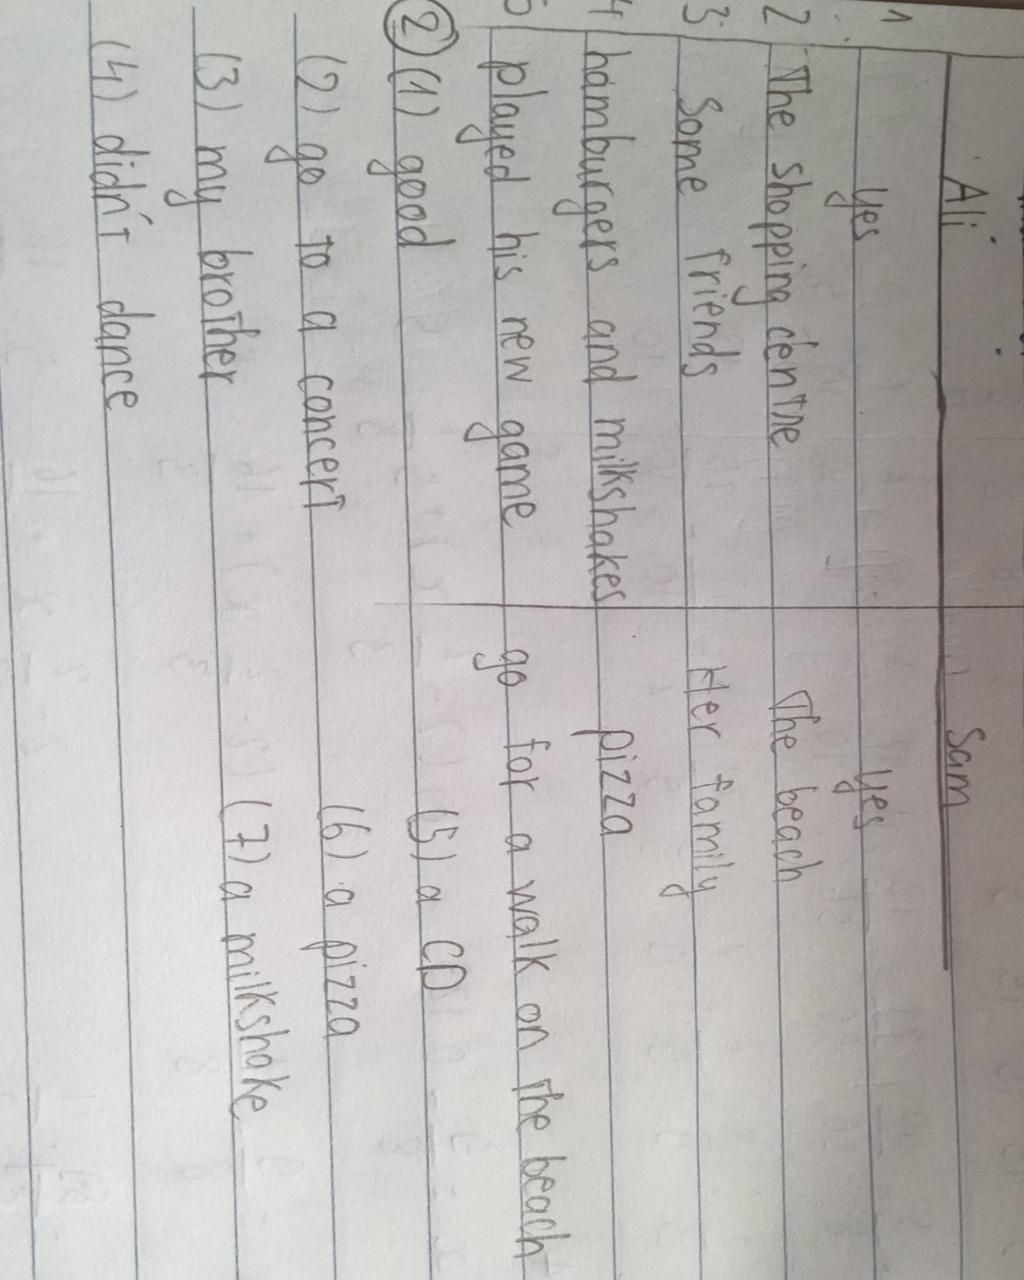 Ali Sam
1 yes yes
2 The shopping centre The beach
3 Some friends Her family
4 hamburgers and milkshakes pizza
5 played his new game go for a walk on the beach
② (1) good (5) a CD
(2) go to a concert (6) a pizza
(3) my brother (7) a milkshake
(4) didn't dance